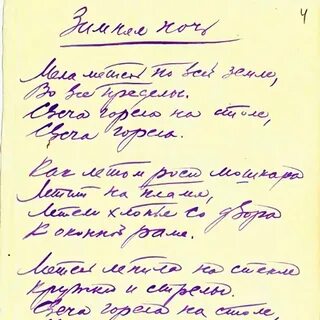 4
Зимняя ночь
Мела метель по всей земле,
Во все пределы.
Свеча горела на столе,
Свеча горела.
Как летом роем мошкара
Летит на пламя,
Летели хлопья со двора
К оконной раме.
Метель лепила на стекле
Кружки и стрелы.
Свеча горела на столе,
Свеча горела.